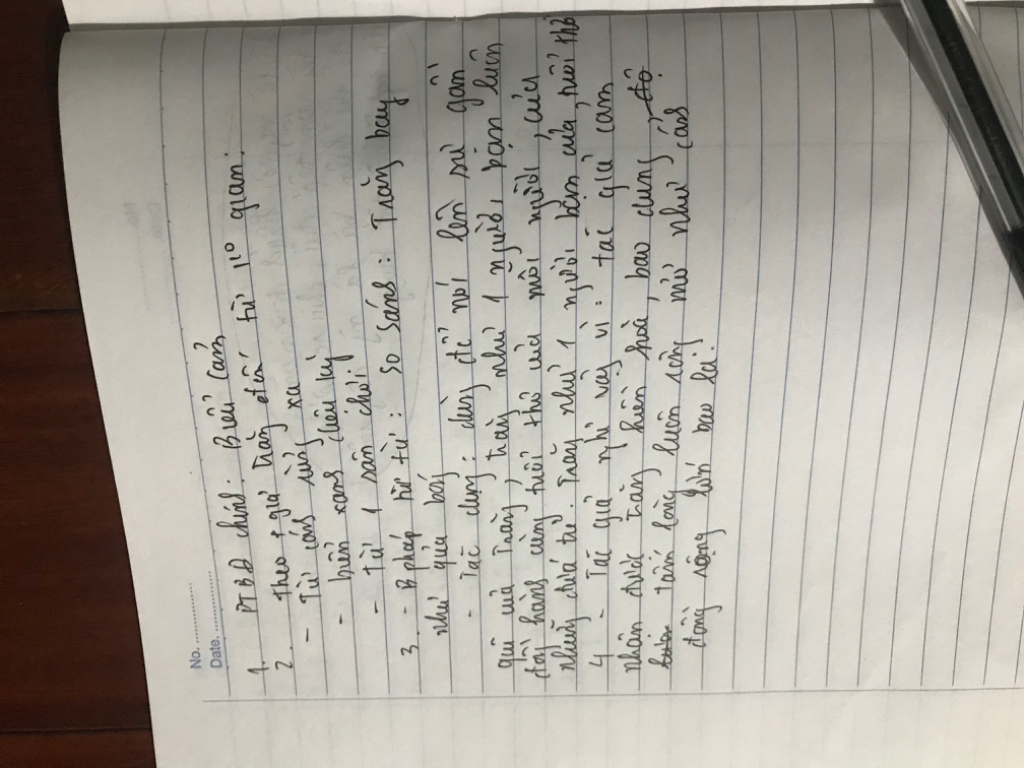 No.
Date.
1. PTBĐ chính: Biểu cảm
2. theo t giả trăng đến từ 1 số quan:
- Từ cánh rừng xa
- biển xanh diệu kỳ
- từ 1 sân chơi
3. - B pháp tu từ: so sánh: Trăng bay
như quả bóng
- Tác dụng: dùng để nói lên sự gần
gũi của Trăng, trăng như 1 người bạn luôn
đồng hành cùng tuổi thơ của mỗi người, của
những đứa trẻ. Trăng như 1 người bạn của tuổi thơ
4 - Tác giả nghĩ vậy vì: tác giả cảm
nhận được trăng hiền hoà, bao dung, độ
tấm lòng luôn rộng mở như cánh
đồng rộng lớn bao la!